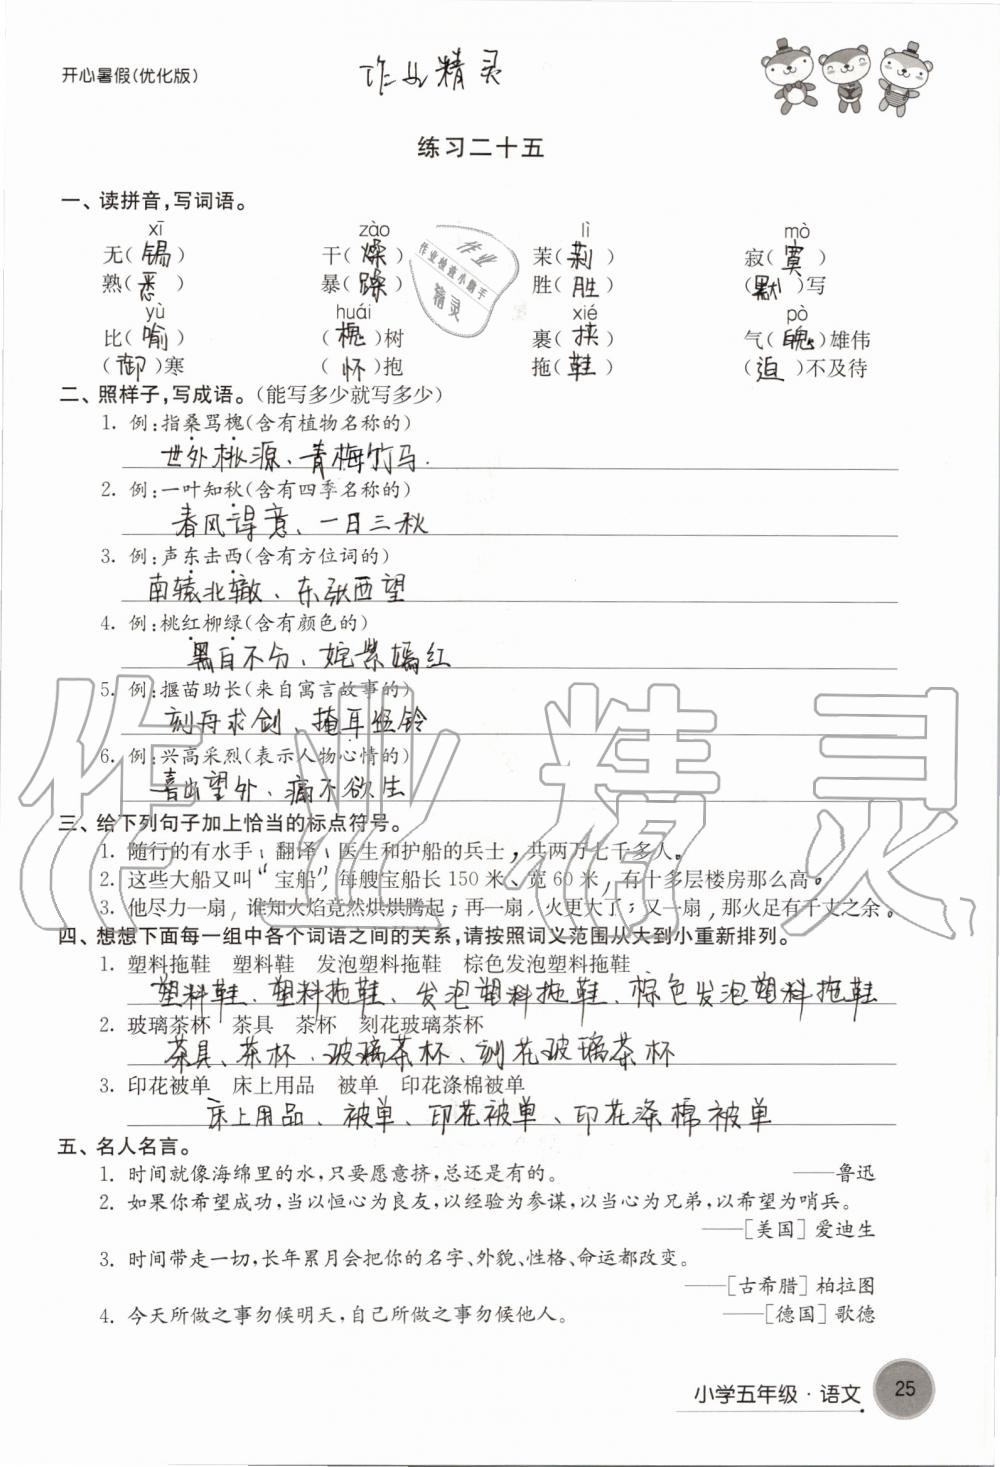 开心暑假(优化版)
作业精灵
练习二十五
一、读拼音,写词语。
xī zào lì mò
无(锡) 干(燥) 茉(莉) 寂(寞)
熟(悉) 暴(躁) 胜(胜) (默)写
yù huái xié pò
比(喻) (槐)树 裹(挟) 气(魄)雄伟
(御)寒 (怀)抱 拖(鞋) (迫)不及待
作业
作业检查小助手
精灵
二、照样子,写成语。(能写多少就写多少)
1. 例:指桑骂槐(含有植物名称的)
世外桃源、青梅竹马.
2. 例:一叶知秋(含有四季名称的)
春风得意、一日三秋
3. 例:声东击西(含有方位词的)
南辕北辙、东张西望
4. 例:桃红柳绿(含有颜色的)
黑白不分、姹紫嫣红
5. 例:揠苗助长(来自寓言故事的)
刻舟求剑、掩耳盗铃
6. 例:兴高采烈(表示人物心情的)
喜出望外、痛不欲生
三、给下列句子加上恰当的标点符号。
1. 随行的有水手、翻译、医生和护船的兵士,共两万七千多人。
2. 这些大船又叫“宝船”,每艘宝船长150米、宽60米,有十多层楼房那么高。
3. 他尽力一扇,谁知火焰竟然烘烘腾起;再一扇,火更大了;又一扇,那火足有千丈之余。
四、想想下面每一组中各个词语之间的关系,请按照词义范围从大到小重新排列。
1. 塑料拖鞋 塑料鞋 发泡塑料拖鞋 棕色发泡塑料拖鞋
塑料鞋、塑料拖鞋、发泡塑料拖鞋、棕色发泡塑料拖鞋
2. 玻璃茶杯 茶具 茶杯 刻花玻璃茶杯
茶具、茶杯、玻璃茶杯、刻花玻璃茶杯
3. 印花被单 床上用品 被单 印花涤棉被单
床上用品、被单、印花被单、印花涤棉被单
五、名人名言。
1. 时间就像海绵里的水,只要愿意挤,总还是有的。 ——鲁迅
2. 如果你希望成功,当以恒心为良友,以经验为参谋,以当心为兄弟,以希望为哨兵。
——[美国]爱迪生
3. 时间带走一切,长年累月会把你的名字、外貌、性格、命运都改变。
——[古希腊]柏拉图
4. 今天所做之事勿候明天,自己所做之事勿候他人。 ——[德国]歌德
小学五年级·语文 25
作业精灵